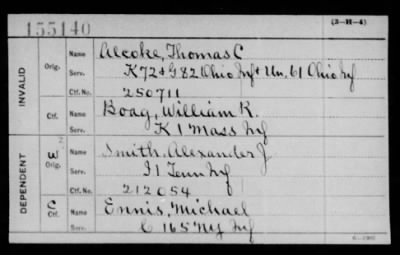 155140
(3-H-4)
INVALID
Orig. Name Alcoke, Thomas C
Serv. K 72 & G 82 Ohio Inf & Un. 61 Ohio Inf
Ctf. No. 250711
Ctf. Name Boag, William R.
Serv. K 1 Mass Inf
DEPENDENT
W Orig. Name Smith, Alexander J
Serv. I 1 Tenn Inf
Ctf. No. 212054
C Ctf. Name Ennis, Michael
Serv. C 165 NY Inf